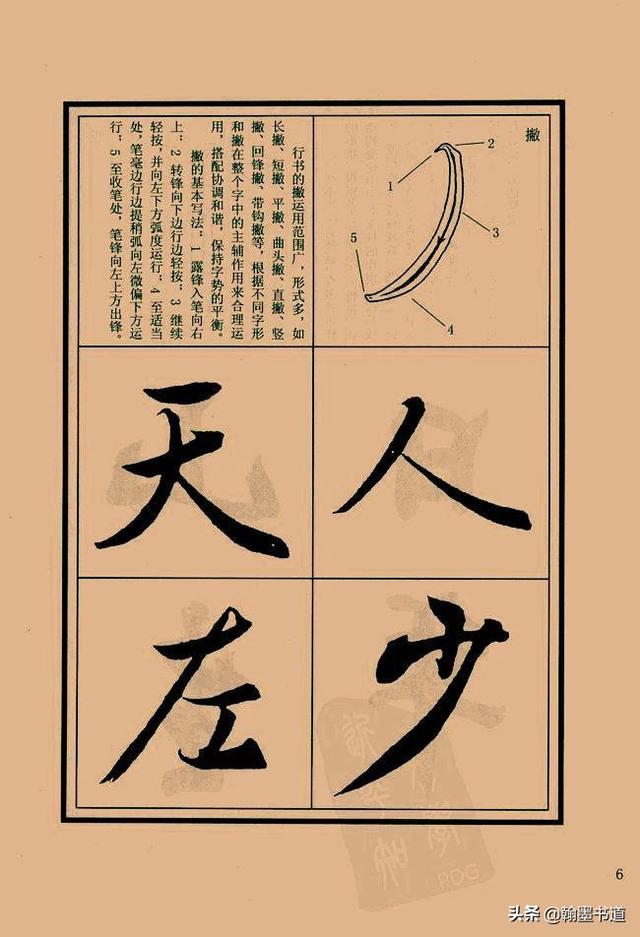 撇
2
1
3
5
4
行书的撇运用范围广，形式多，如
长撇、短撇、平撇、曲头撇、直撇、竖
撇、回锋撇、带钩撇等，根据不同字形
和撇在整个字中的主辅作用来合理运
用，搭配协调和谐，保持字势的平衡。
撇的基本写法：1 露锋入笔向右
上；2 转锋向下边行边轻按；3 继续
轻按，并向左下方弧度运行；4 至适当
处，笔毫边行边提稍弧向左微偏下方运
行；5 至收笔处，笔锋向左上方出锋。
人
天
少
左
PDG
6
头条 @翰墨书道